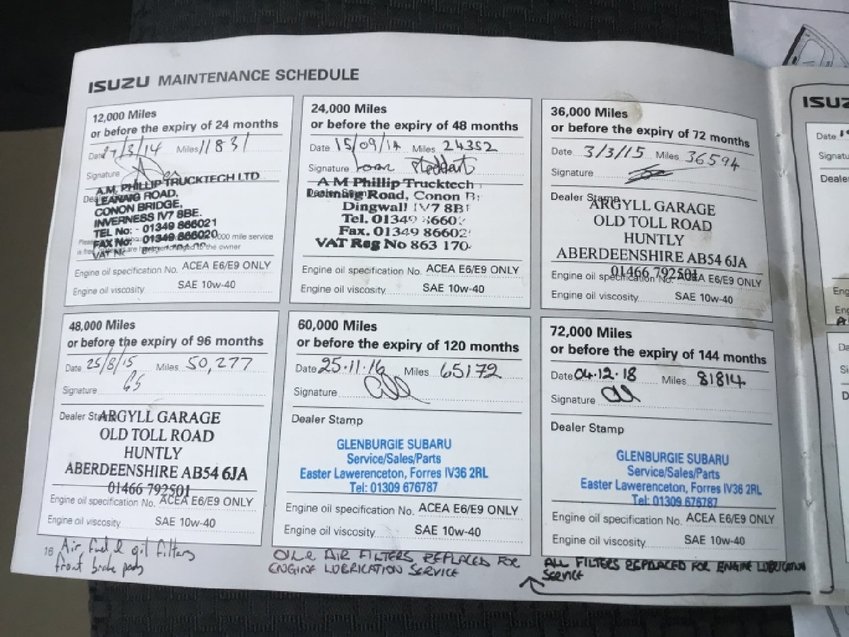 ISUZU MAINTENANCE SCHEDULE
12,000 Miles
or before the expiry of 24 months
Date 27/3/14 Miles 11831
Signature
A.M. PHILLIP TRUCKTECH LTD
LEANAIG ROAD,
CONON BRIDGE,
INVERNESS IV7 8BE.
TEL No: - 01349 866021
FAX No: - 01349 866020
VAT
Engine oil specification No. ACEA E6/E9 ONLY
Engine oil viscosity SAE 10w-40
24,000 Miles
or before the expiry of 48 months
Date 15/09/14 Miles 24352
Signature
A M Phillip Trucktech
Leanaig Road, Conon Br
Dingwall IV7 8B
Tel. 01349 8660
Fax. 01349 86602
VAT Reg No 863 170
Engine oil specification No. ACEA E6/E9 ONLY
Engine oil viscosity SAE 10w-40
36,000 Miles
or before the expiry of 72 months
Date 3/3/15 Miles 36594
Signature
Dealer Stamp
ARGYLL GARAGE
OLD TOLL ROAD
HUNTLY
ABERDEENSHIRE AB54 6JA
01466 792501
Engine oil specification No. ACEA E6/E9 ONLY
Engine oil viscosity SAE 10w-40
48,000 Miles
or before the expiry of 96 months
Date 25/8/15 Miles 50,277
Signature
Dealer Stamp
ARGYLL GARAGE
OLD TOLL ROAD
HUNTLY
ABERDEENSHIRE AB54 6JA
01466 792501
Engine oil specification No. ACEA E6/E9 ONLY
Engine oil viscosity SAE 10w-40
60,000 Miles
or before the expiry of 120 months
Date 25.11.16 Miles 65172
Signature
Dealer Stamp
GLENBURGIE SUBARU
Service/Sales/Parts
Easter Lawerenceton, Forres IV36 2RL
Tel: 01309 676787
Engine oil specification No. ACEA E6/E9 ONLY
Engine oil viscosity SAE 10w-40
72,000 Miles
or before the expiry of 144 months
Date 04.12.18 Miles 81814
Signature
Dealer Stamp
GLENBURGIE SUBARU
Service/Sales/Parts
Easter Lawerenceton, Forres IV36 2RL
Tel: 01309 676787
Engine oil specification No. ACEA E6/E9 ONLY
Engine oil viscosity SAE 10w-40
16 Air, fuel & oil filters
front brake pads
OIL & AIR FILTERS REPLACED FOR
ENGINE LUBRICATION SERVICE
ALL FILTERS REPLACED FOR ENGINE LUBRICATION
SERVICE
ISUZ